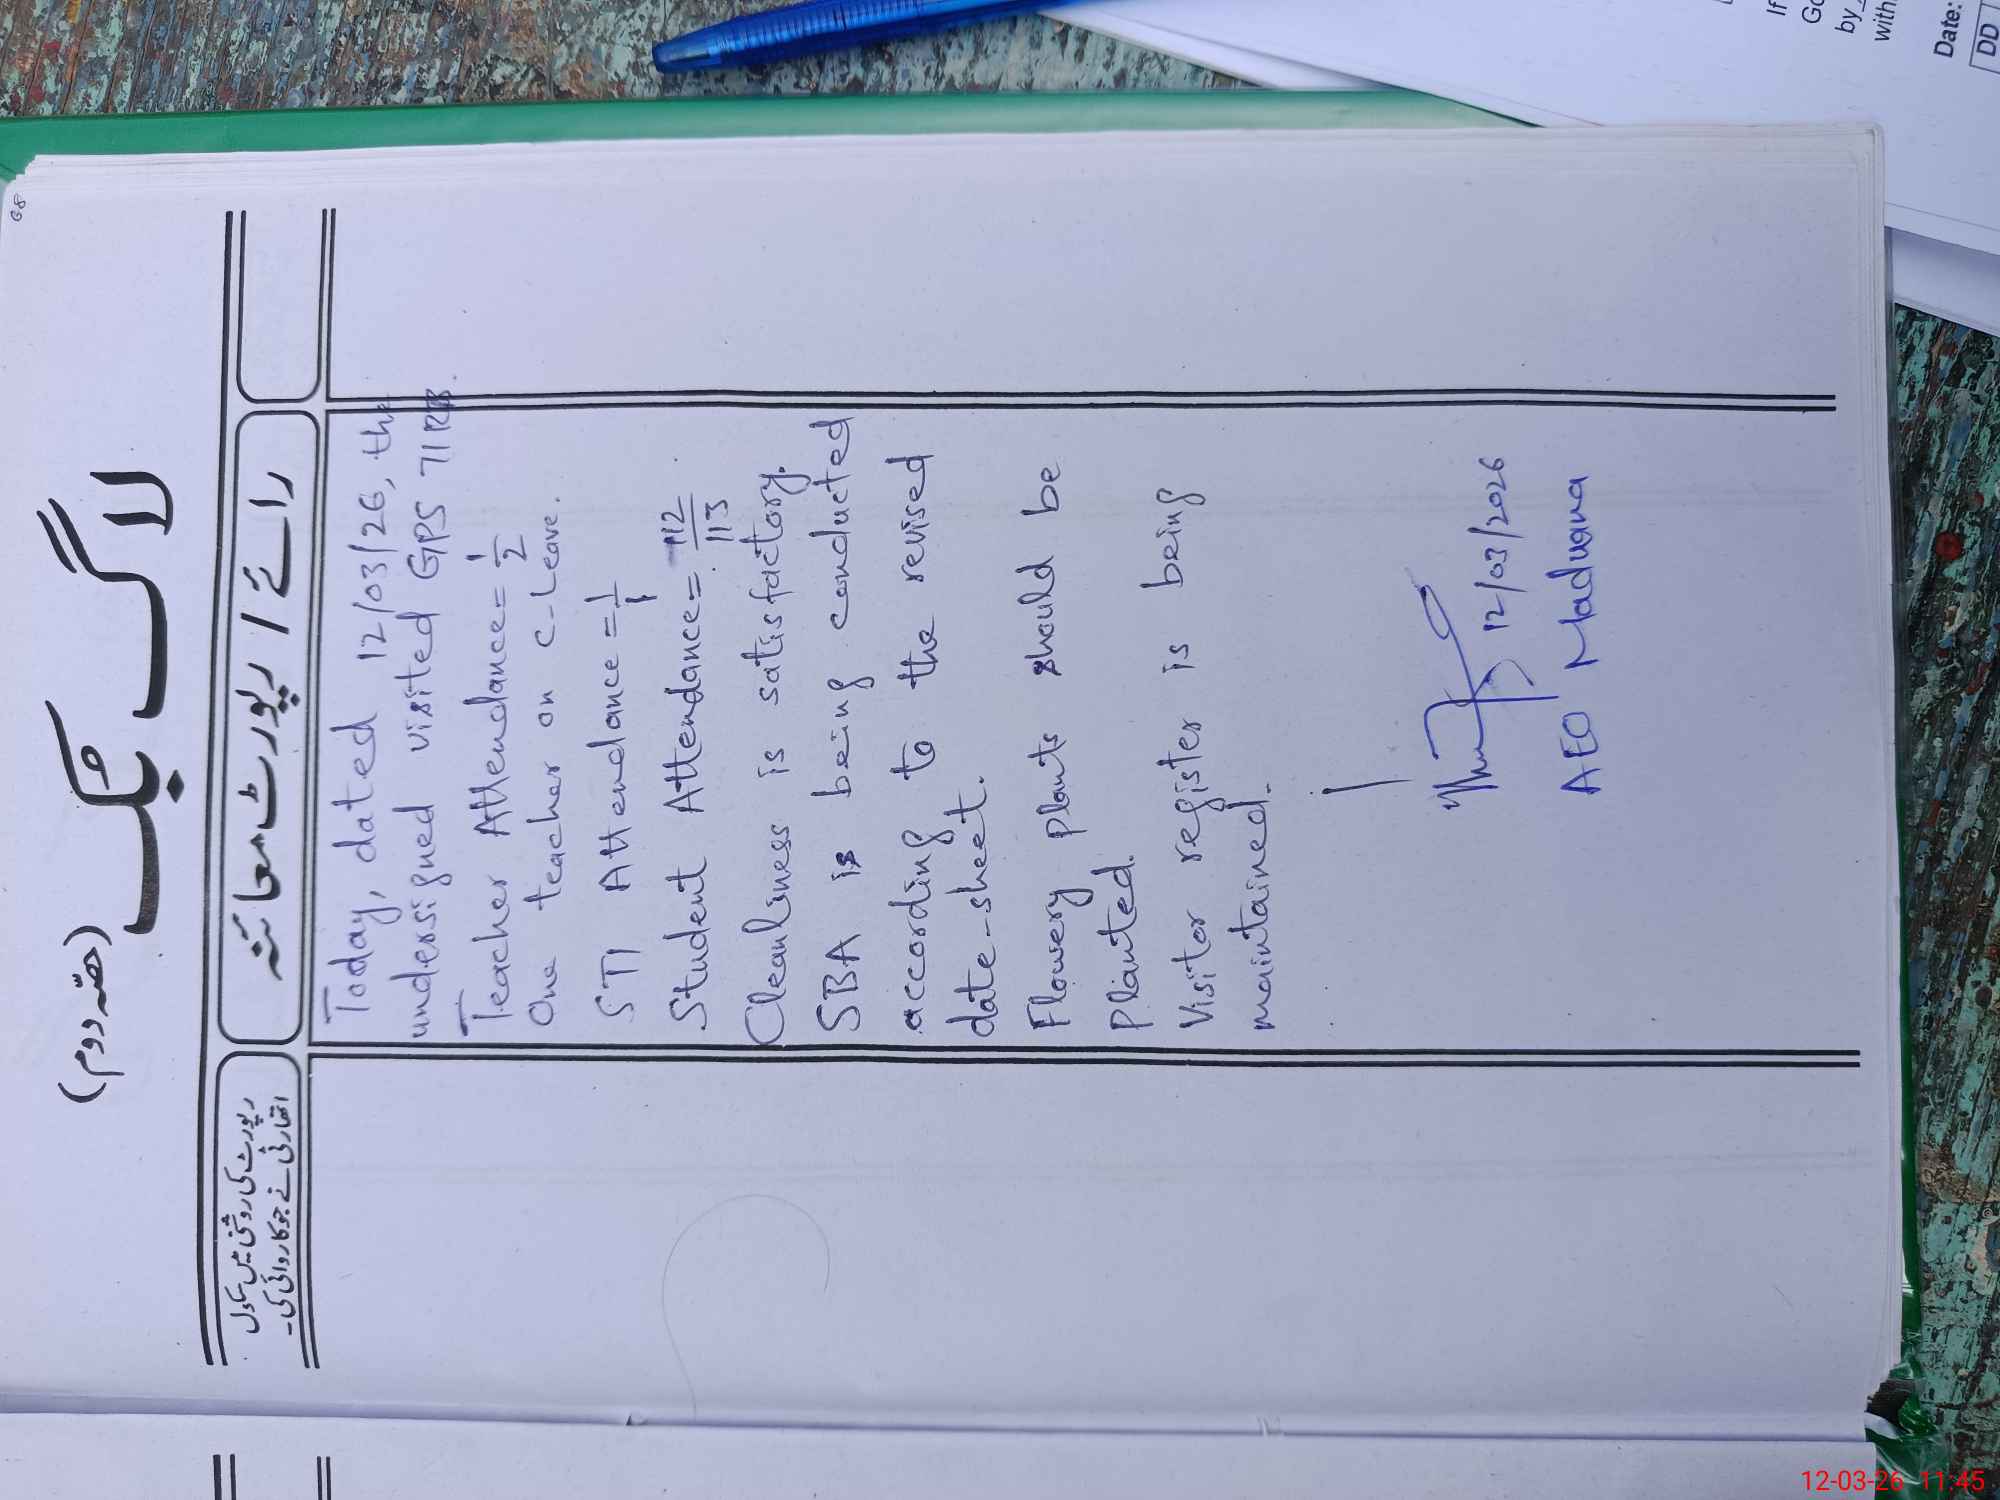 68
لاگ بک
(حصہ دوم)
رائے / رپورٹ معائنہ
رپورٹ کی روشنی میں سکول
اتھارٹی نے جو کاروائی کی۔
Today, dated 12/03/26, the
undersigned visited GPS 71RB.
Teacher Attendance = 1/2
One teacher on C-Leave.
STI Attendance = 1/1
Student Attendance = 112/113
Cleanliness is satisfactory.
SBA is being conducted
according to the revised
date-sheet.
Flowery plants should be
Planted.
Visitor register is being
maintained.
12/03/2026
AEO Maduana
If
by
with
Date:
DD
12-03-26 11:45